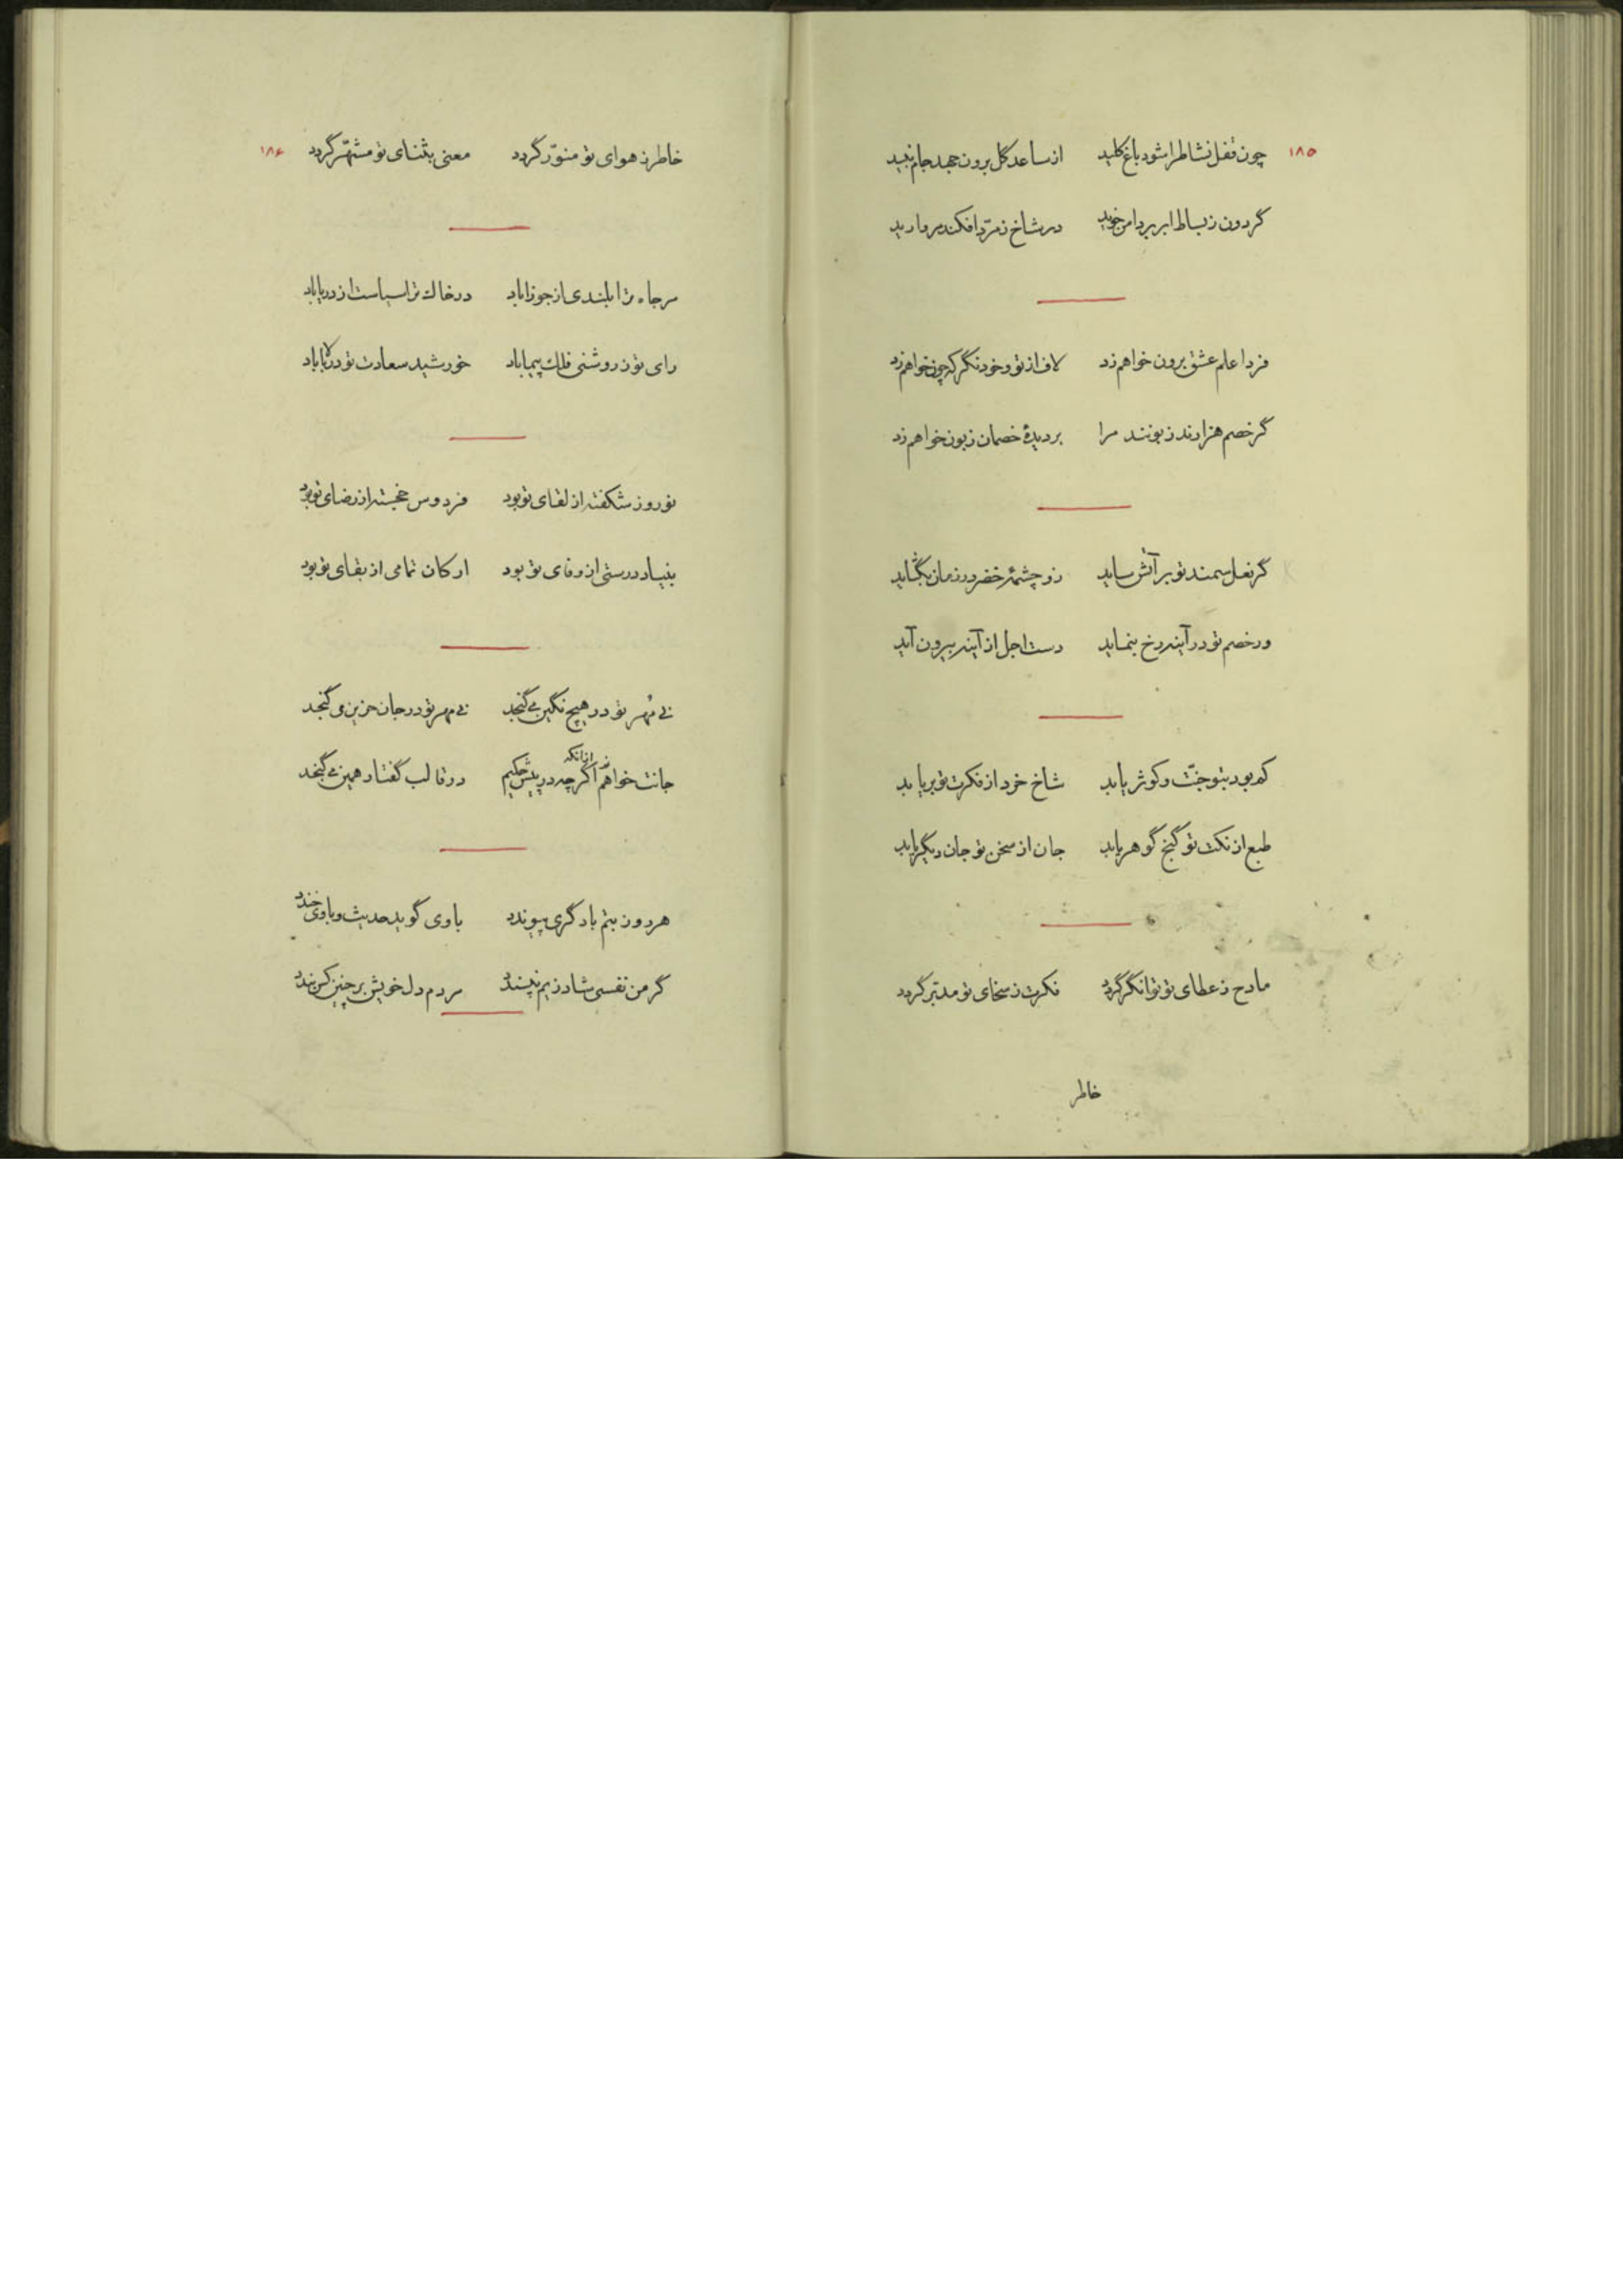 ۱۸۵
چون قفل نشاط را شود باغ کلید از ساعد گل برون جهد جام نبید
گردون ز بساط ابر بر دامن خوید در شاخ زمرّد افکند مروارید
فردا علم عشق برون خواهم زد لاف از تو و خود نگر که چون خواهم زد
گر خصم هزارند زبونند مرا بر دیدهٔ خصمان زبون خواهم زد
گر نعل سمند تو بر آتش ساید زو چشمهٔ خضر در زمان بگشاید
ور خصم تو در آینه رخ بنماید دست اجل از آینه بیرون آید
که بود بتو جنّت و کوثر یابد شاخ خرد از فکرت تو بر یابد
طبع از نکت تو گنج گوهر یابد جان از سخن تو جان دیگر یابد
مادح ز عطای تو توانگر گردد فکرت ز سخای تو مدبّر گردد
خاطر
۱۸۶
خاطر ز هوای تو منوّر گردد معنی بثنای تو مشتهر گردد
مر جاه ترا بلندی از جوزا باد در خاک ترا سیاست از دریا باد
رای تو ز روشنی فلک پیما باد خورشید سعادت تو در بالا باد
نوروز شکفته از لقای تو بود فردوس خجسته از رضای تو بود
بنیاد درستی از وفای تو بود ارکان تمامی از بقای تو بود
بی مُهر تو در هیچ نگین می گنجد بی مهر تو در جان حزین می گنجد
جانت خواهم اگر چه در پیش حکیم در قالب گفتار همین می گنجد
ازانکه
هر دون بتم با دگری پیوندد با وی گوید حدیث و با وی خندد
گر من نفسی شاد زیم نپسندد مردم دل خویش بر چنین کس بندد